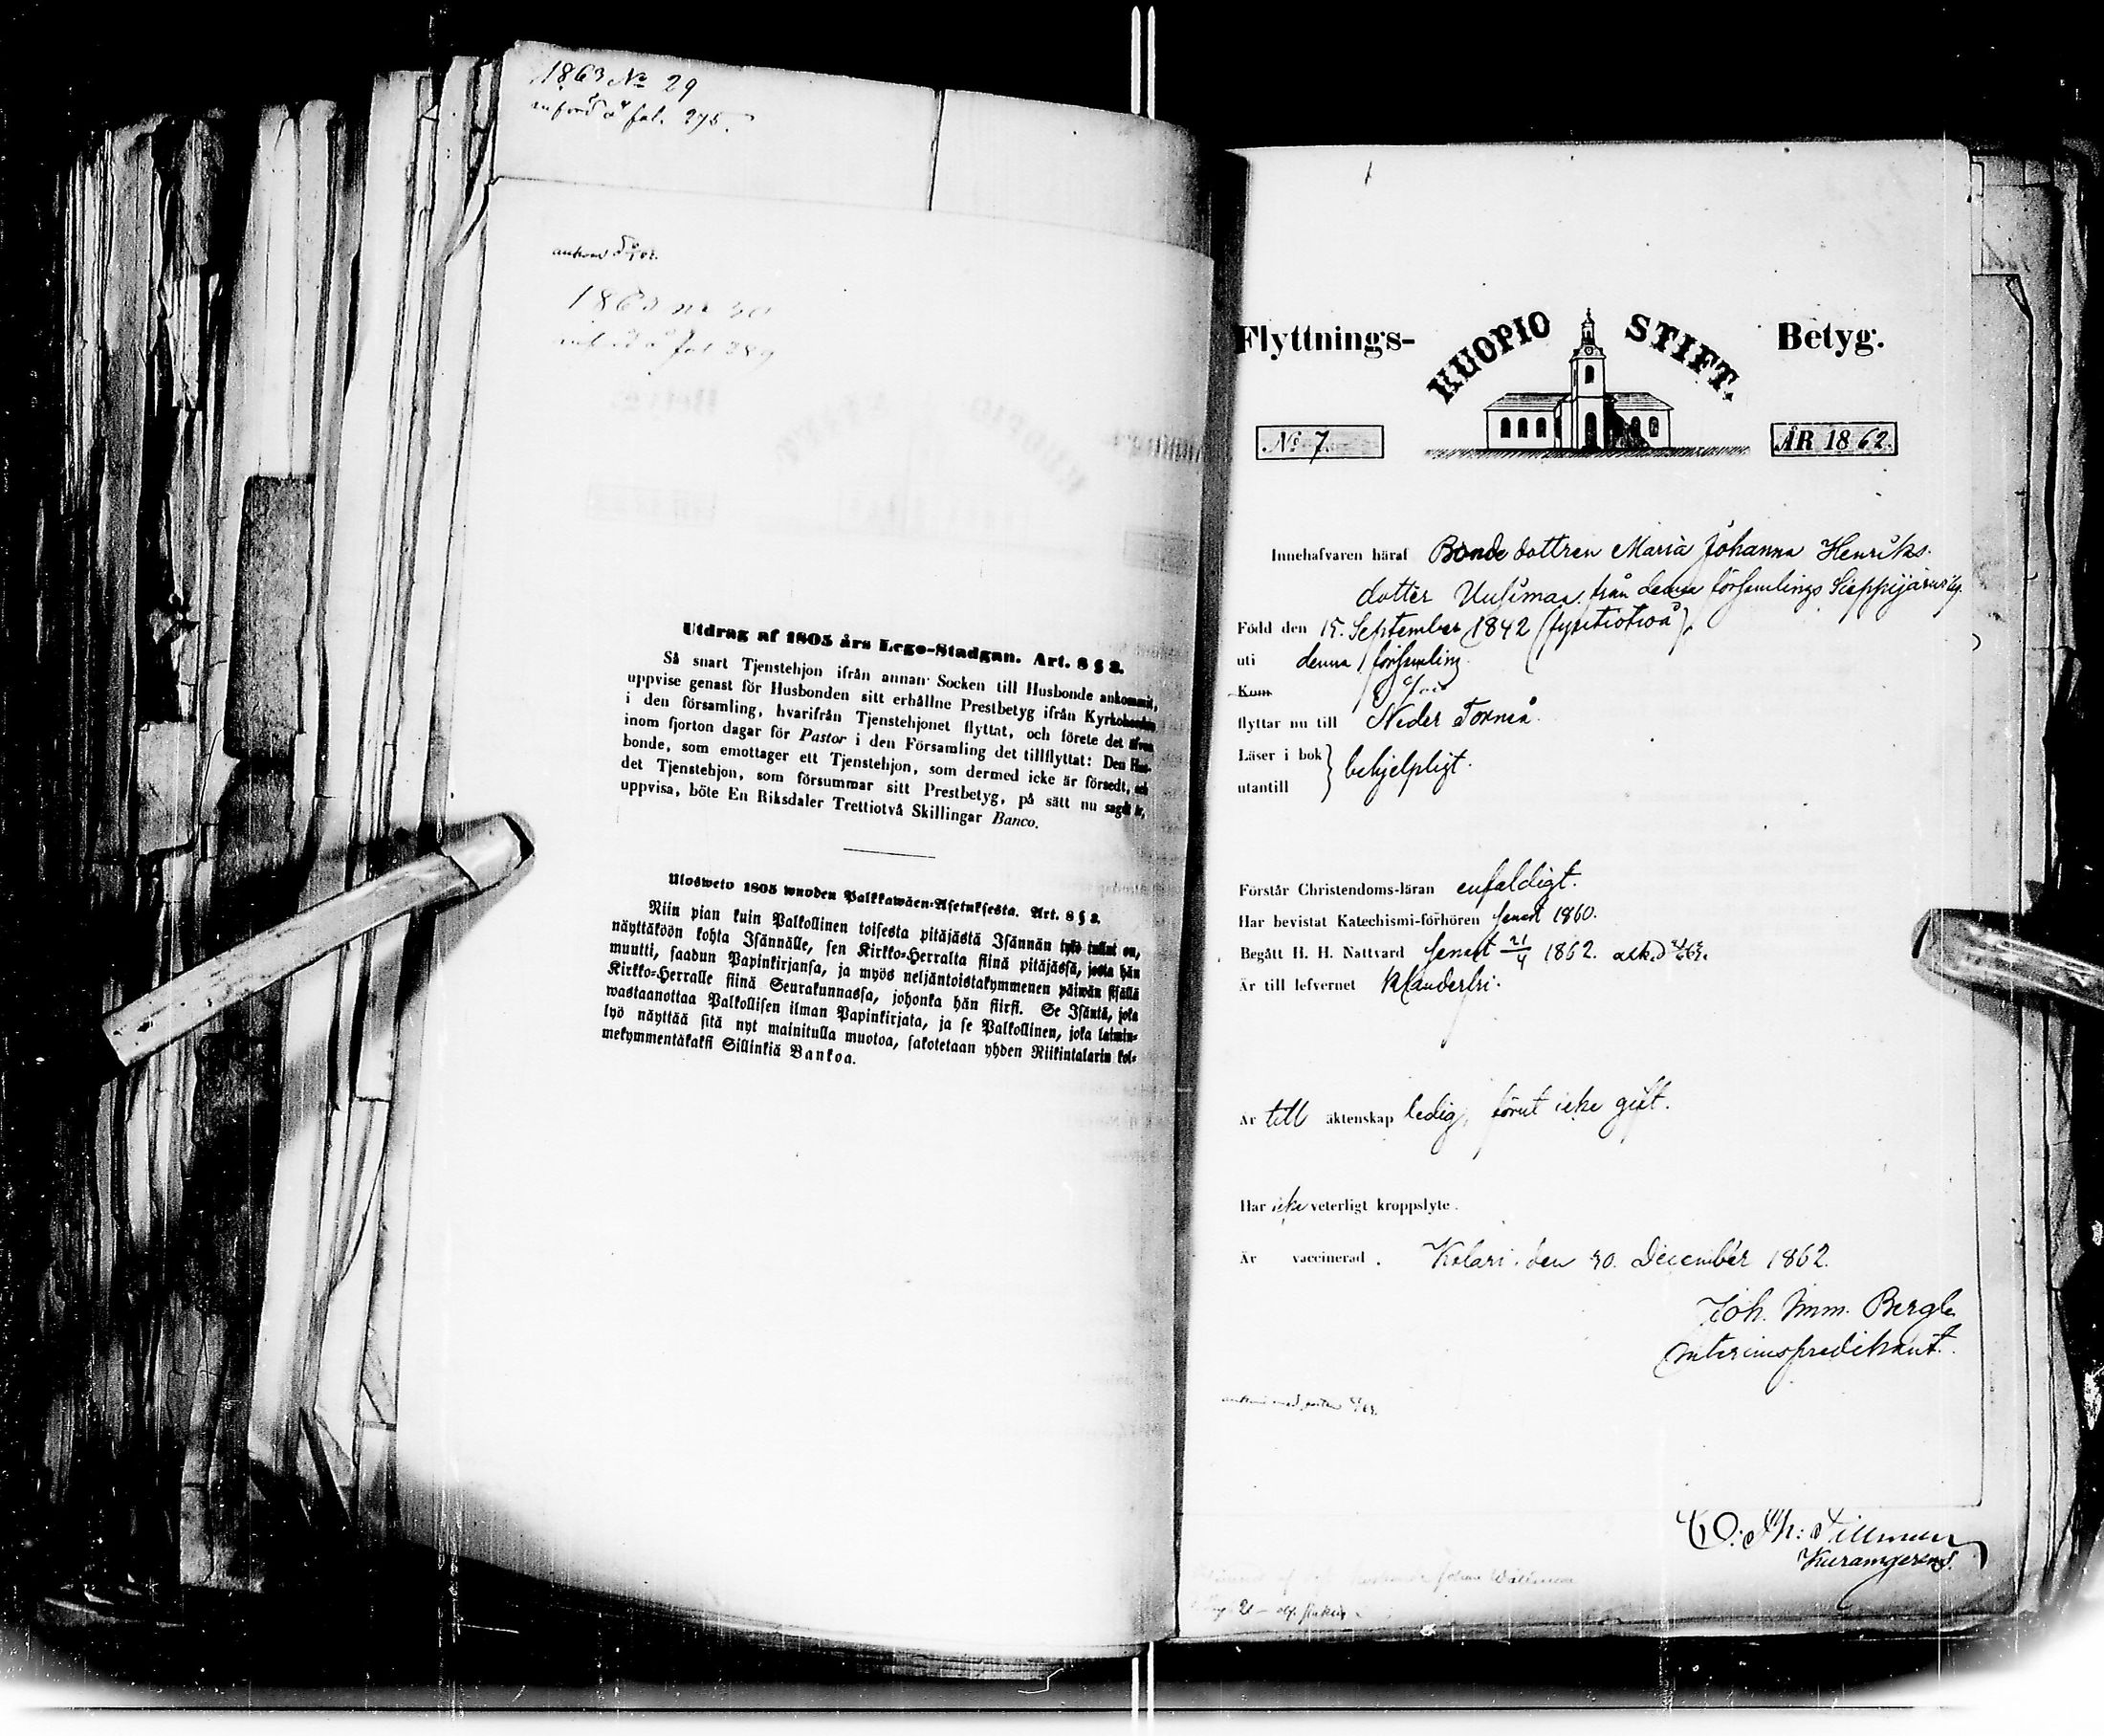 1863 No 29
införd å fol. 275.
1863 No 30
införd å fol 289
Utdrag af 1805 års Lego-Stadgan. Art. 8 § 2.
Så snart Tjenstehjon ifrån annan Socken till Husbonde ankommit,
uppvise genast för Husbonden sitt erhållne Prestbetyg ifrån Kyrkoherden
i den församling, hvarifrån Tjenstehjonet flyttat, och förete det äfven
inom fjorton dagar för Pastor i den Församling det tillflyttat: Den Hus-
bonde, som emottager ett Tjenstehjon, som dermed icke är försedt, och
det Tjenstehjon, som försummar sitt Prestbetyg, på sätt nu sagdt är,
uppvisa, böte En Riksdaler Trettiotvå Skillingar Banco.
Ulosweto 1805 wuoden Palkkawäen-Asetuksesta. Art. 8 § 2.
Niin pian kuin Palkollinen toisesta pitäjästä Isännän työ tullut on,
näyttäköön kohta Isännälle, sen Kirkko-Herralta siinä pitäjässä, josta hän
muutti, saadun Papinkirjansa, ja myös neljäntoistakymmenen päiwän sisällä
Kirkko-Herralle siinä Seurakunnassa, johonka hän siirsi. Se Isäntä, joka
wastaanottaa Palkollisen ilman Papinkirjata, ja se Palkollinen, joka laimin-
lyö näyttää sitä nyt mainitulla muotoa, sakotetaan yhden Riikintalarin kol-
mekymmentäkaksi Sillinkiä Bankoa.
Flyttnings- KUOPIO STIFT. Betyg.
No 7. ÅR 1862.
Innehafvaren häraf Bondedottren Maria Johanna Henriks-
dotter Uusimaa från denna församlings Sieppijärvi by.
Född den 15. September 1842 (fyratiotvå),
uti denna församling
Kom
flyttar nu till Neder Torneå.
Läser i bok } behjelpligt.
utantill
Förstår Christendoms-läran enfaldigt.
Har bevistat Katechismi-förhören senast 1860.
Begått H. H. Nattvard senast 21/4 1862.
Är till lefvernet klanderfri.
Är till äktenskap ledig, förut icke gift.
Har icke veterligt kroppslyte.
Är vaccinerad. Kolari den 30. December 1862.
Joh. Imm. Bergh
Interimspredikant.